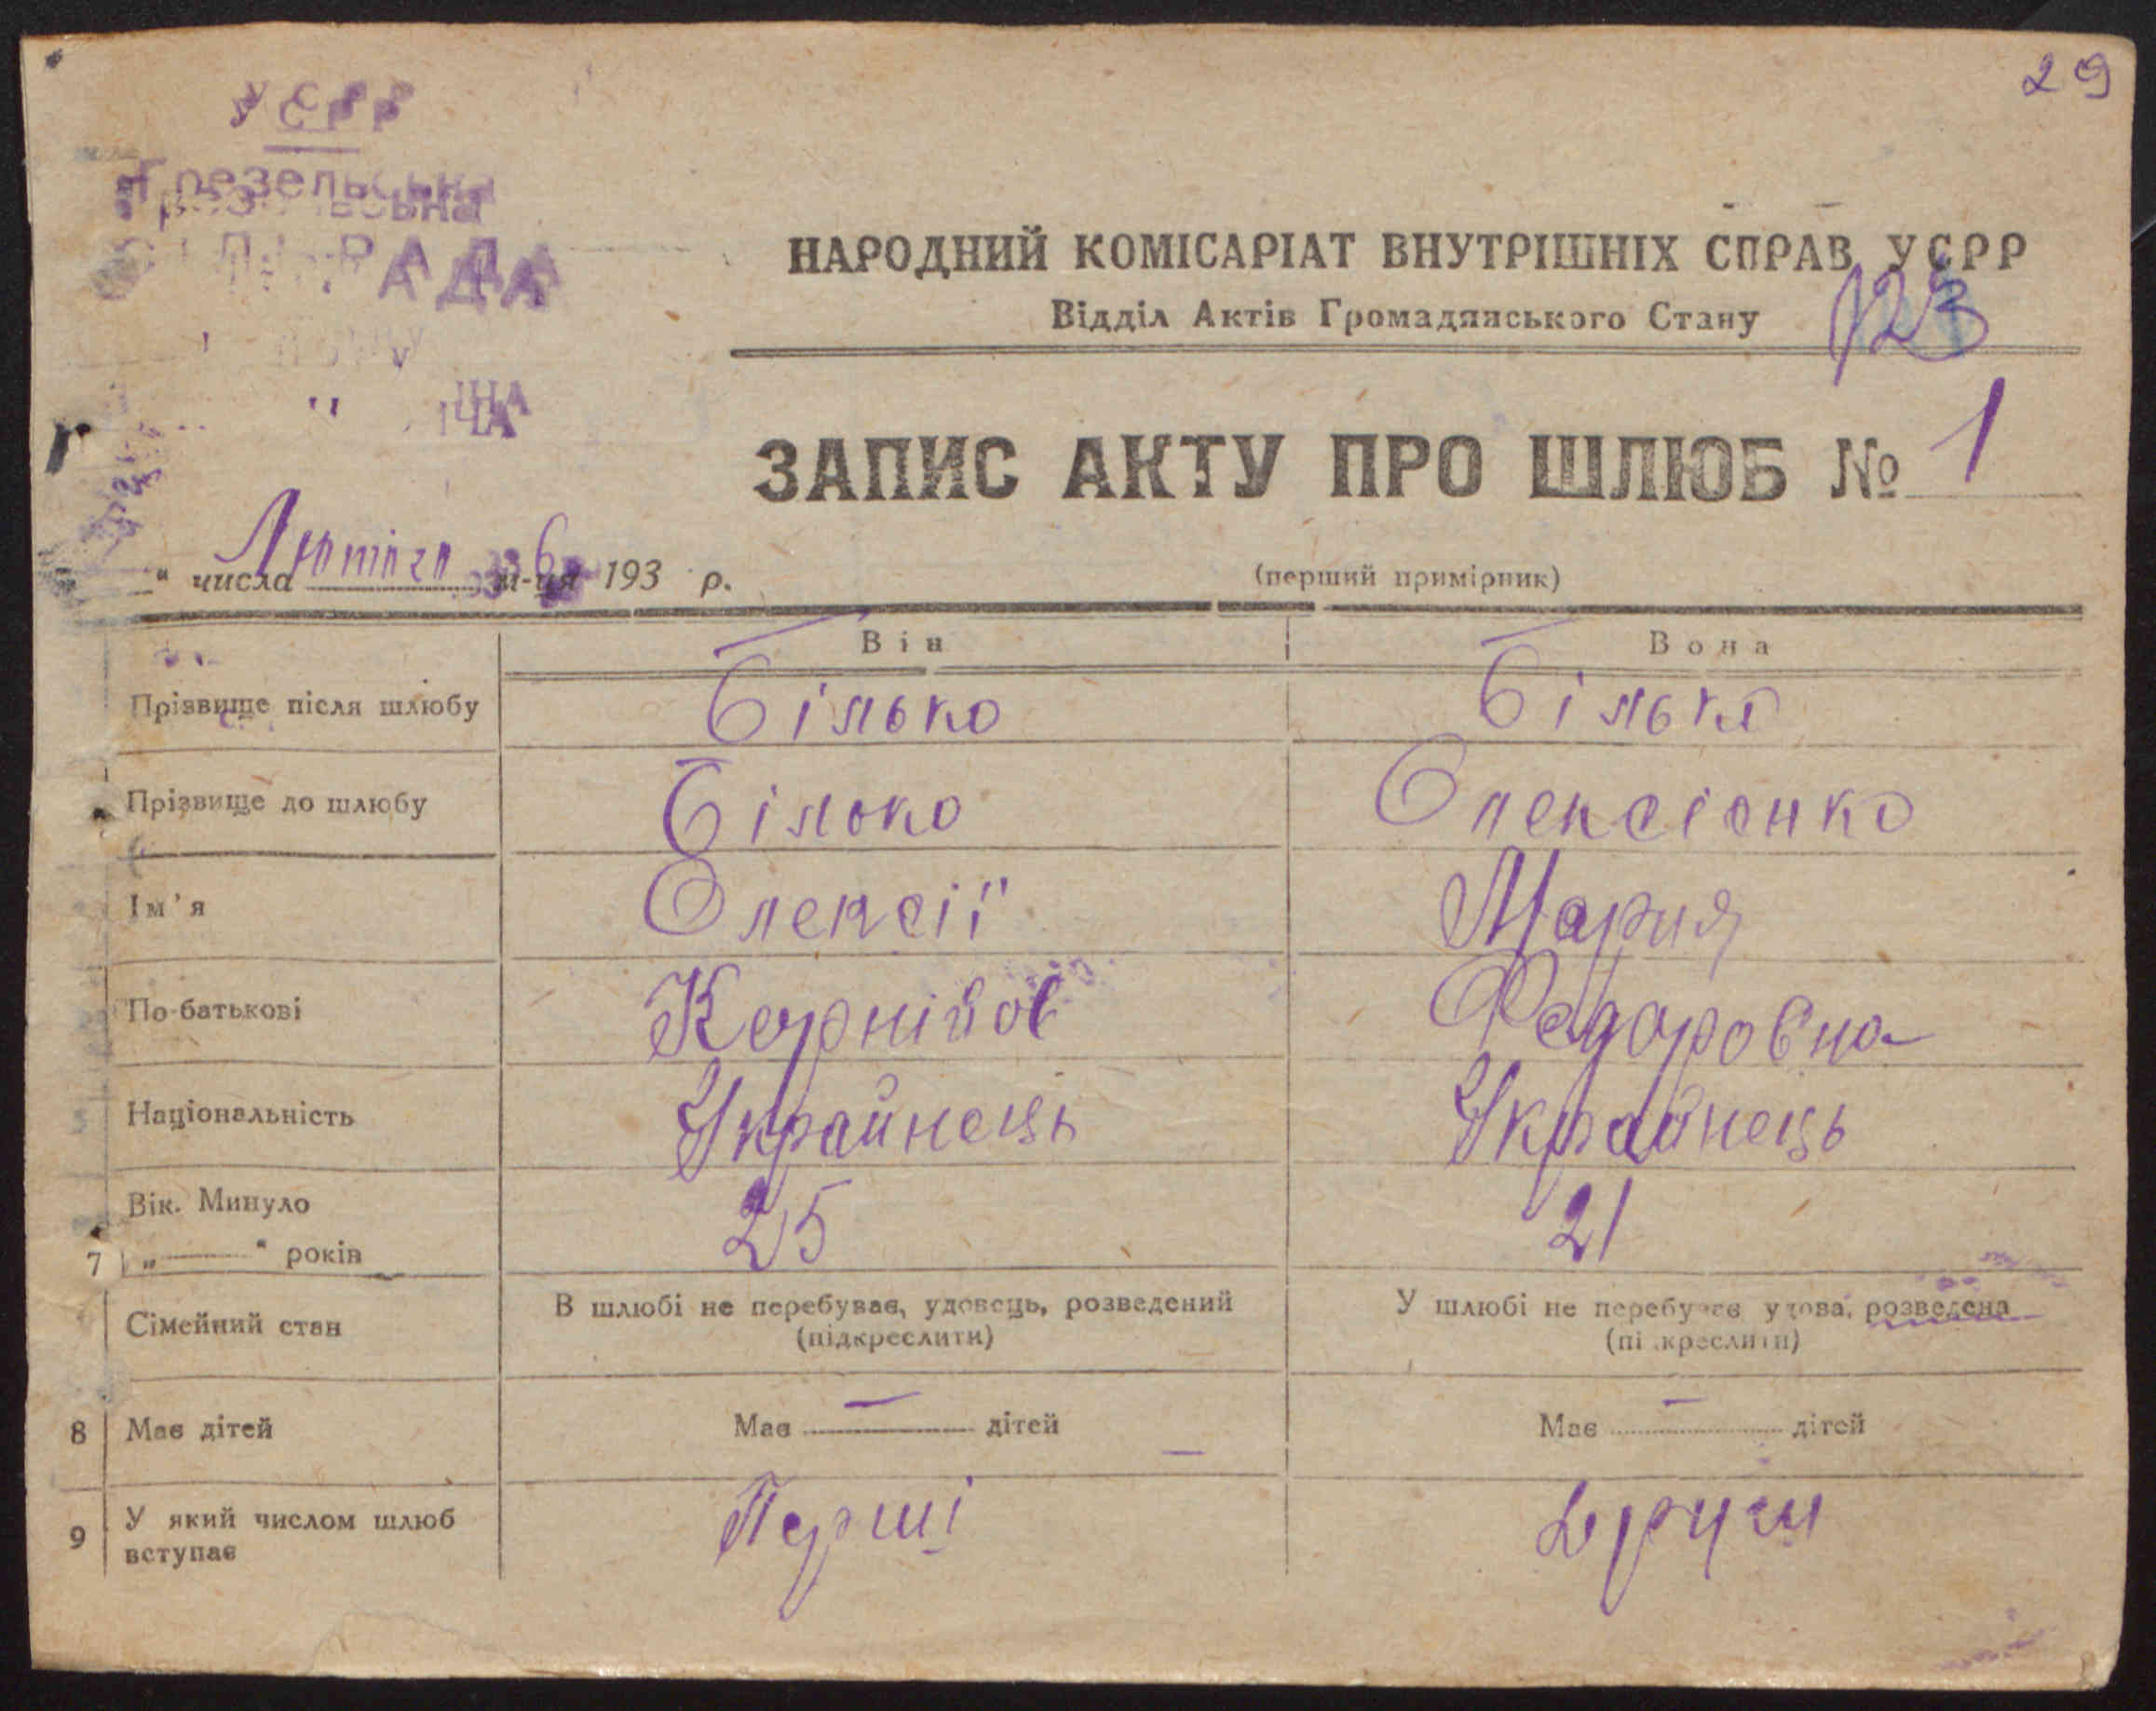 29
УСРР
Грезельська
РАДА
НАРОДНИЙ КОМІСАРІАТ ВНУТРІШНІХ СПРАВ УСРР
Відділ Актів Громадянського Стану
123
ЗАПИС АКТУ ПРО ШЛЮБ № 1
" числа Лютого 6 м-ця 193 р.
(перший примірник)
Він Вона
Прізвище після шлюбу Білько Білько
Прізвище до шлюбу Білько Олексієнко
Ім'я Олексій Мария
По-батькові Корнійов Федоровна
Національність Українець Українець
Вік. Минуло
7 „ — " років 25 21
Сімейний стан В шлюбі не перебував, удовець, розведений У шлюбі не перебуває удова, розведена
(підкреслити) (підкреслити)
8 Має дітей Має — дітей Має — дітей
9 У який числом шлюб вступає Перші Други